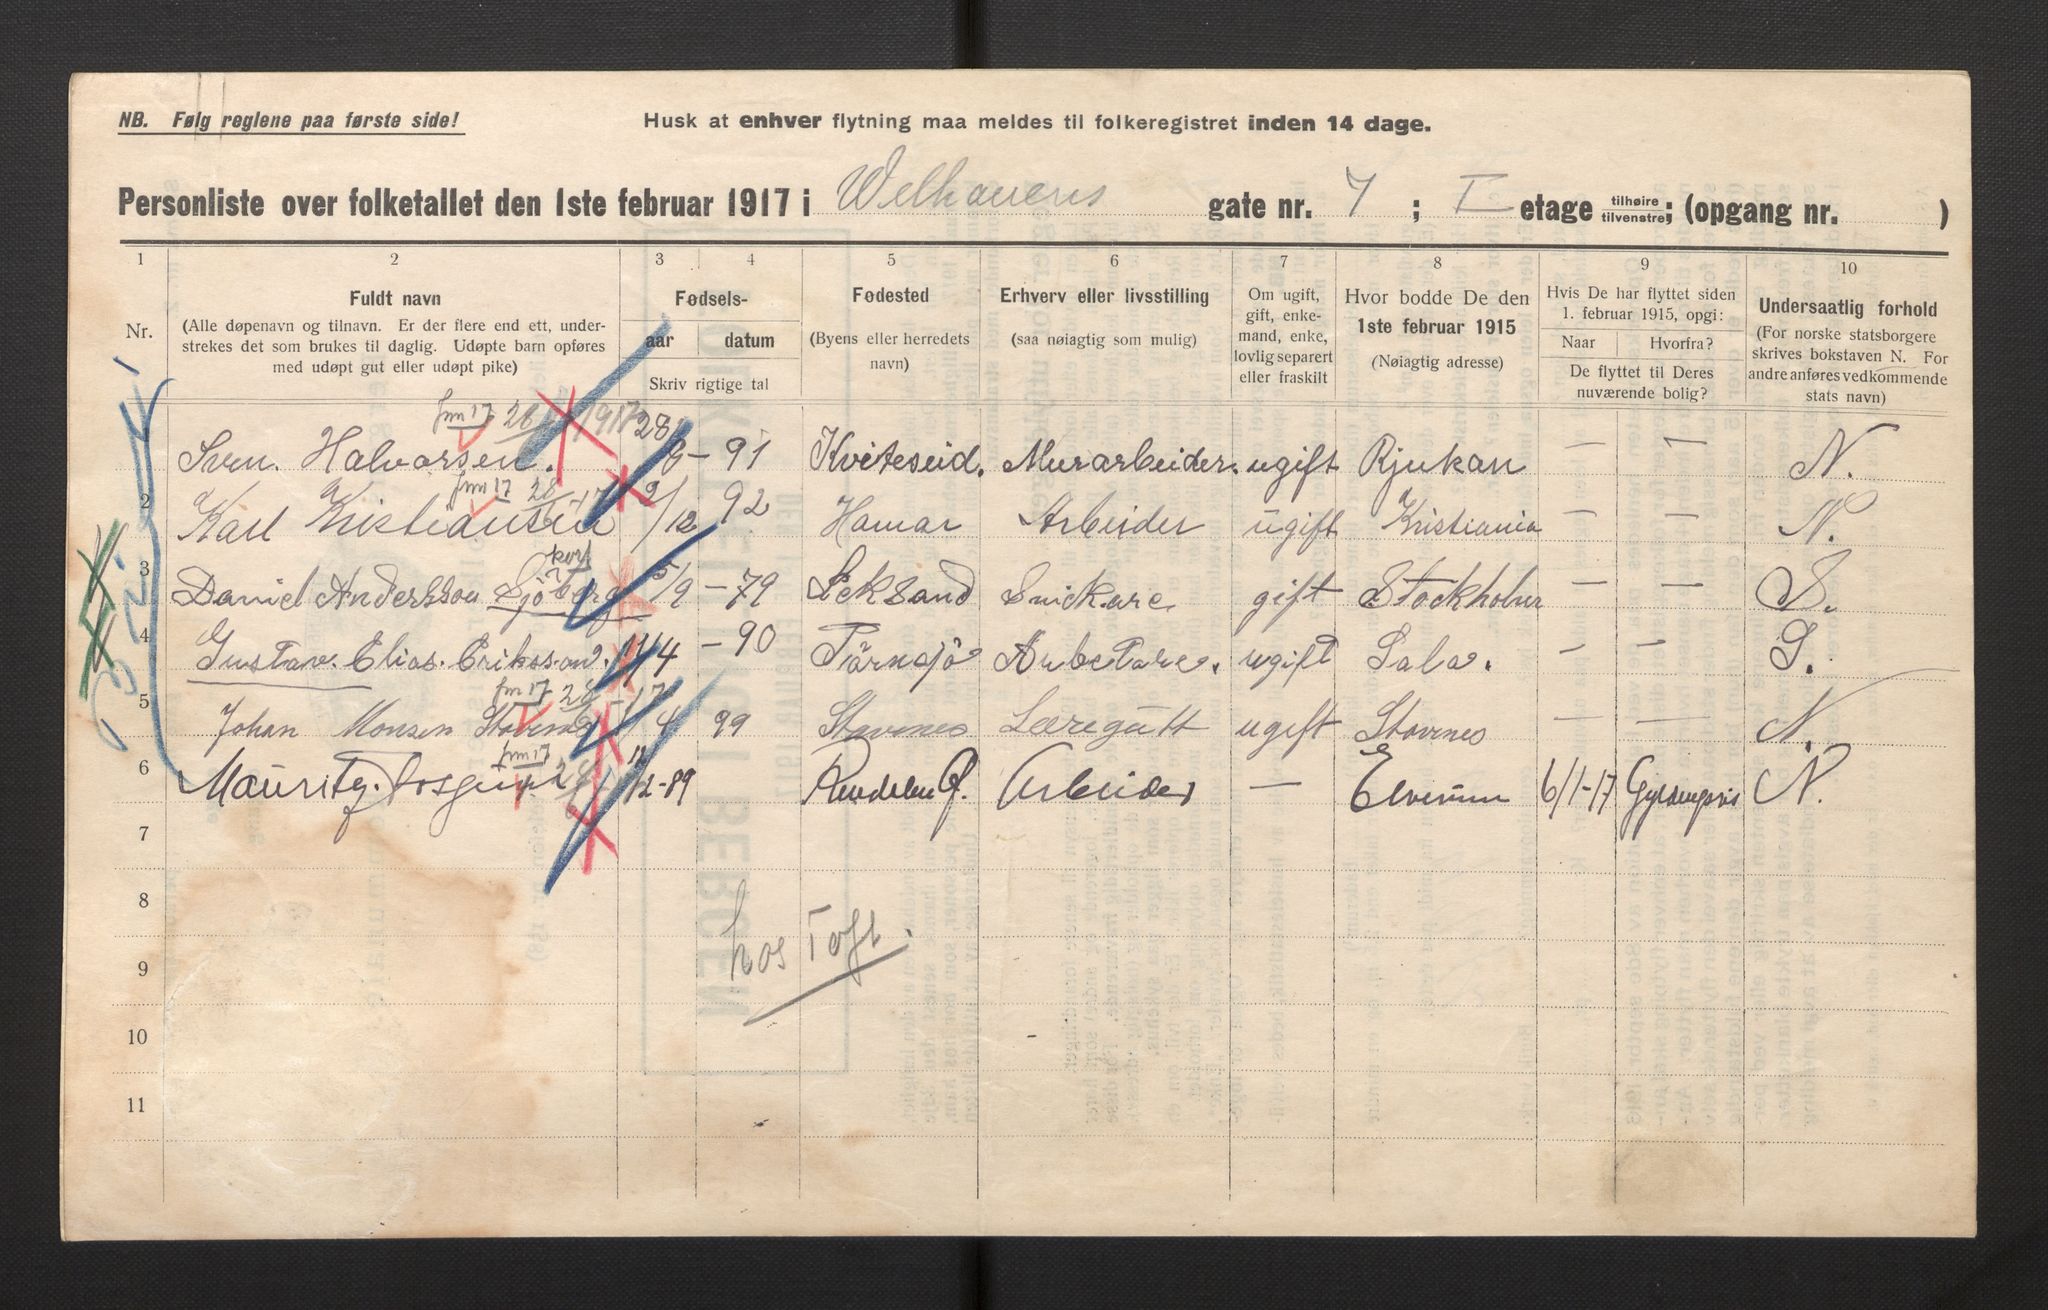 NB. Følg reglene paa første side!
Husk at enhver flytning maa meldes til folkeregistret inden 14 dage.
Personliste over folketallet den 1ste februar 1917 i Welhavens gate nr. 7 ; I etage tilhøire tilvenstre; (opgang nr. )
1 2 3 4 5 6 7 8 9 10
Nr.
Fuldt navn
(Alle døpenavn og tilnavn. Er der flere end ett, under-
strekes det som brukes til daglig. Udøpte barn opføres
med udøpt gut eller udøpt pike)
Fødsels-
aar datum
Skriv rigtige tal
Fødested
(Byens eller herredets
navn)
Erhverv eller livsstilling
(saa nøiagtig som mulig)
Om ugift,
gift, enke-
mand, enke,
lovlig separert
eller fraskilt
Hvor bodde De den
1ste februar 1915
(Nøiagtig adresse)
Hvis De har flyttet siden
1. februar 1915, opgi:
Naar Hvorfra?
De flyttet til Deres
nuværende bolig?
Undersaatlig forhold
(For norske statsborgere
skrives bokstaven N. For
andre anføres vedkommende
stats navn)
fm 17 28 1917
1 Sven. Halvorsen. 28/6 - 91 Kviteseid. Murarbeider. ugift Rjukan — — N.
fm 17 28 -17
2 Karl Kristiansen 2/12 92 Hamar Arbeider ugift Kristiania — — N.
3 Daniel Andersson Sjöberg 5/9 - 79 Leksand Snickare gift Stockholm — — S.
4 Gustav. Elias. Eriksson. 4 - 90 Tärnsjö Arbetare. ugift Sala. — — S.
fm 17 28 -17
5 Johan Monsen 4 99 Stavenes Læregutt ugift Stavnes — — N.
fm 17 28
6 Mauritz. 12-89 Arbeider — Elverum 6/1-17 N.
7
8
hos Toft.
9
10
11